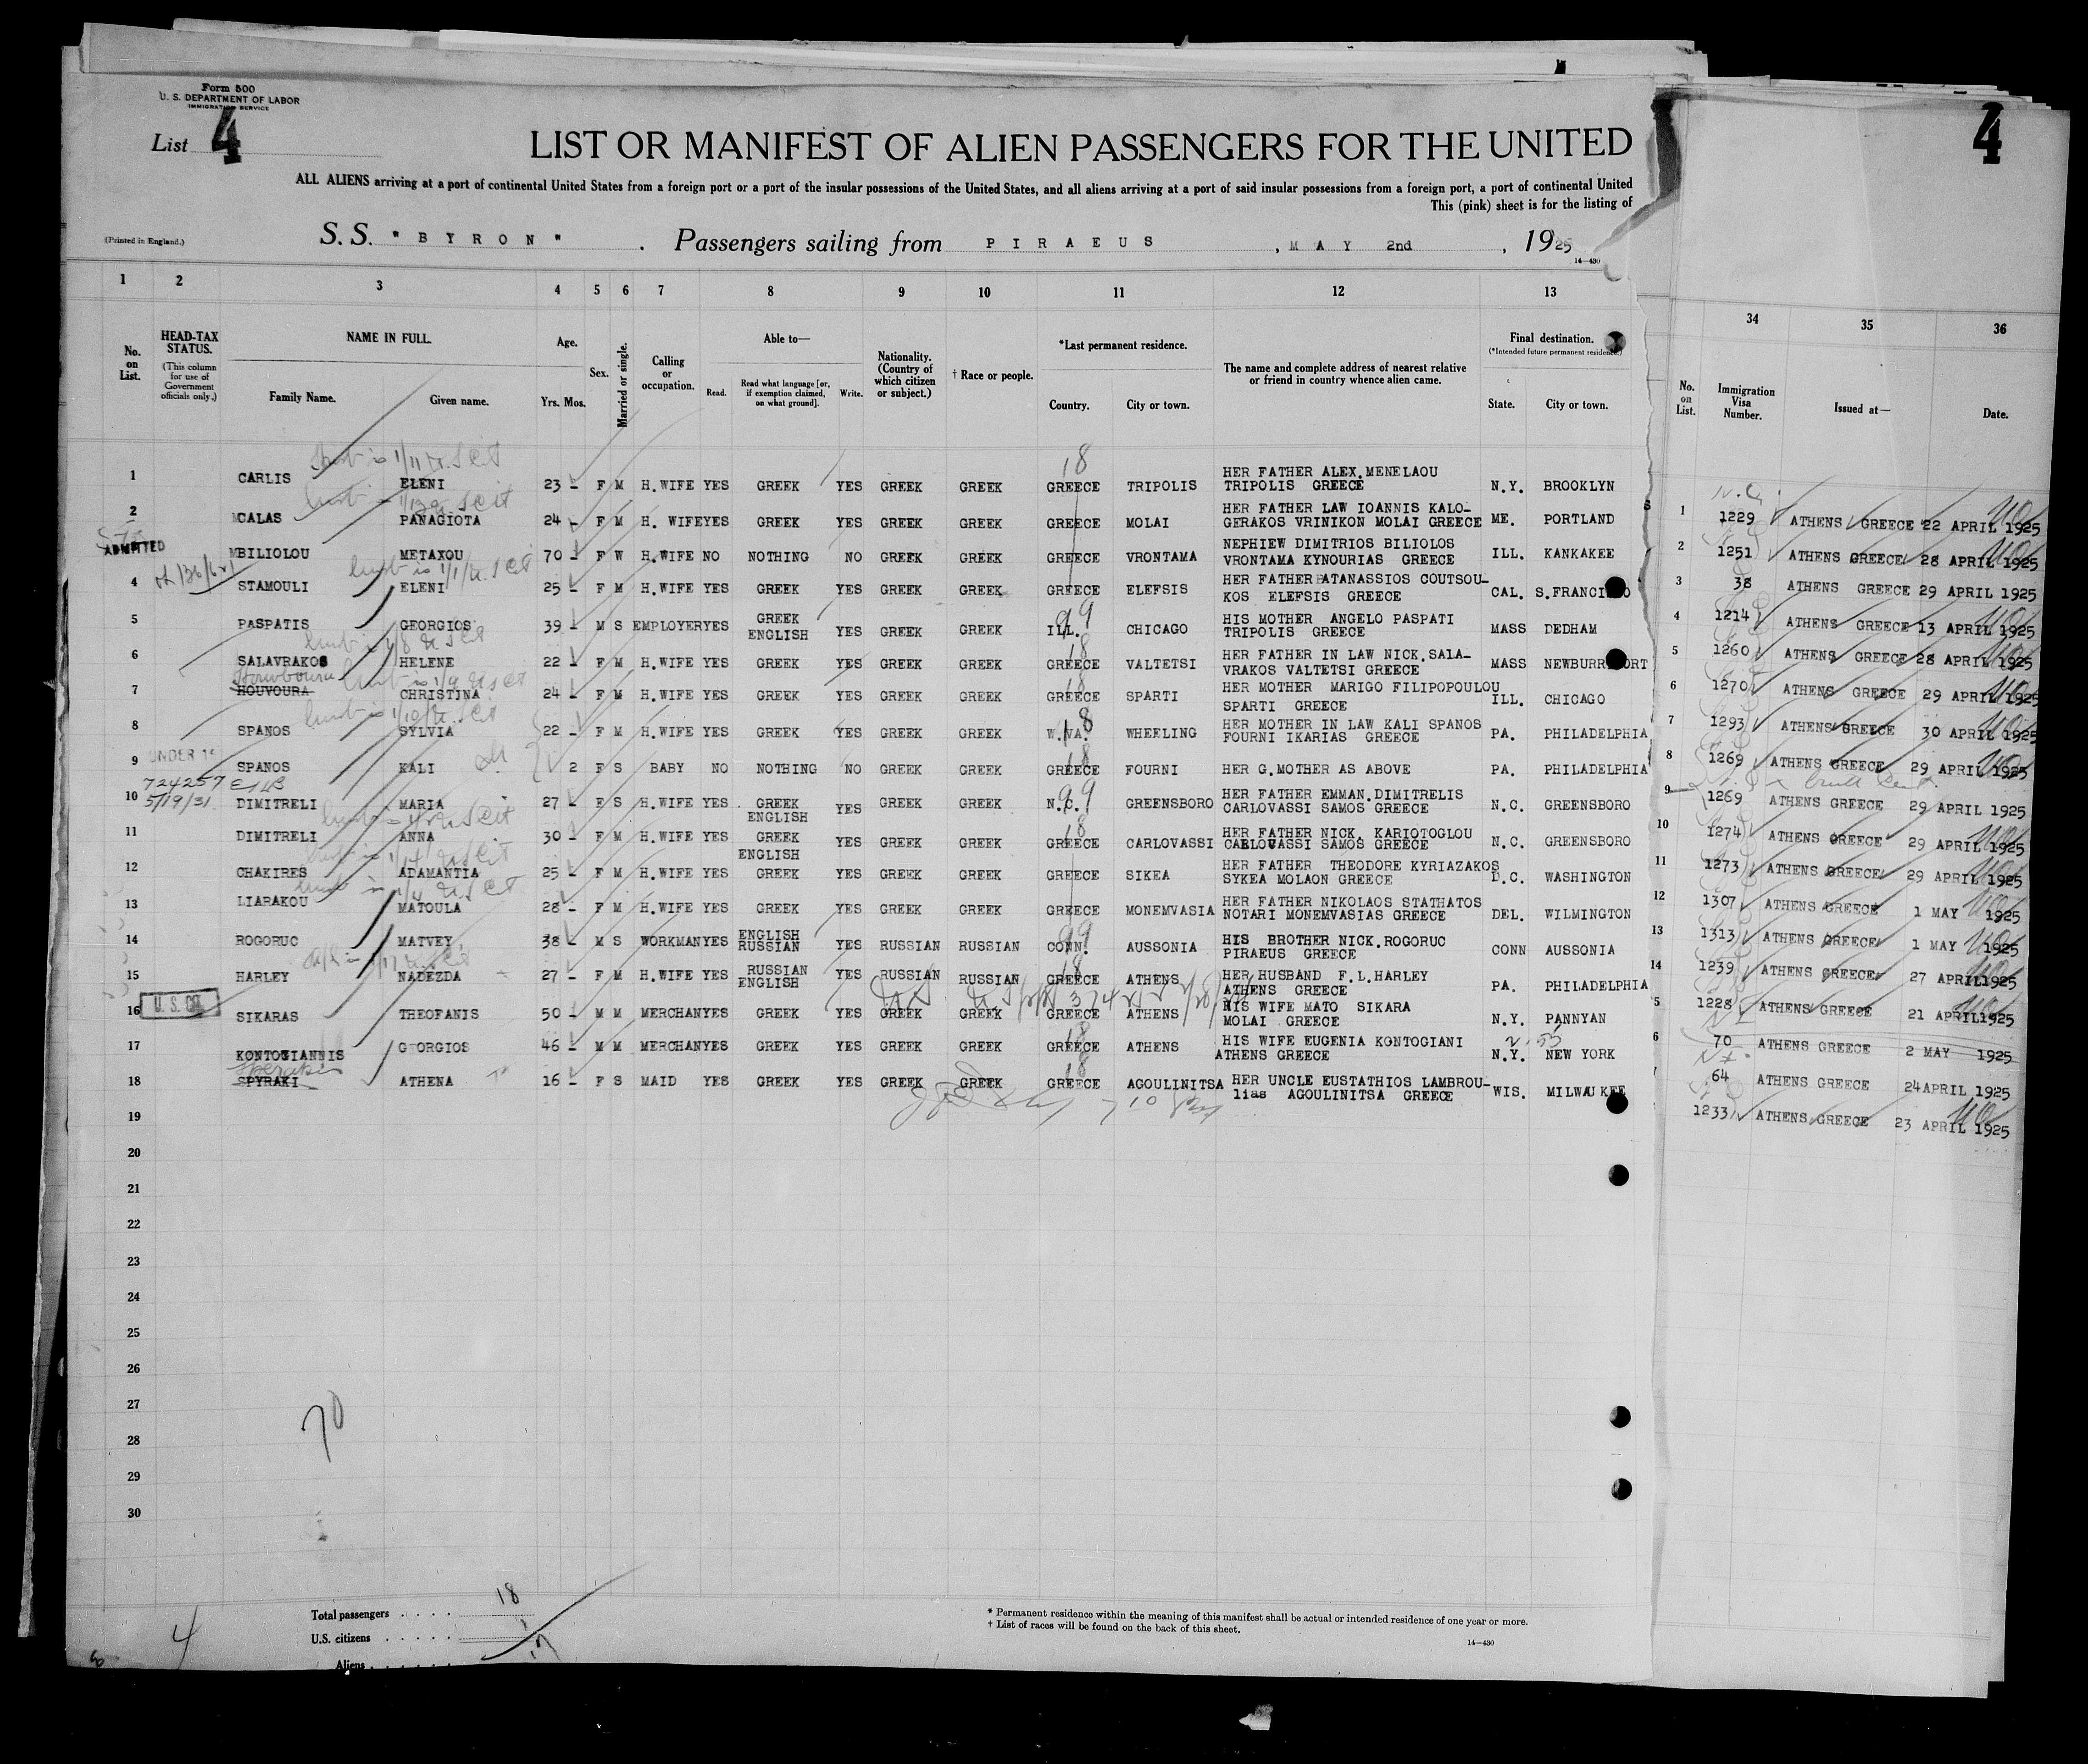 Form 500
U. S. DEPARTMENT OF LABOR
IMMIGRATION SERVICE
List 4
4
LIST OR MANIFEST OF ALIEN PASSENGERS FOR THE UNITED
ALL ALIENS arriving at a port of continental United States from a foreign port or a port of the insular possessions of the United States, and all aliens arriving at a port of said insular possessions from a foreign port, a port of continental United
This (pink) sheet is for the listing of
(Printed in England.)
S. S. "BYRON" . Passengers sailing from PIRAEUS , MAY 2nd , 1925
14—430
1 2 3 4 5 6 7 8 9 10 11 12 13 34 35 36
No. on List.
HEAD-TAX STATUS.
(This column for use of Government officials only.)
NAME IN FULL.
Family Name. Given name.
Age.
Yrs. Mos.
Sex.
Married or single.
Calling or occupation.
Able to—
Read. Read what language [or, if exemption claimed, on what ground]. Write.
Nationality. (Country of which citizen or subject.)
† Race or people.
*Last permanent residence.
Country. City or town.
The name and complete address of nearest relative or friend in country whence alien came.
Final destination.
(*Intended future permanent residence.)
State. City or town.
No. on List.
Immigration Visa Number.
Issued at—
Date.
1 CARLIS ELENI 23 F M H.WIFE YES GREEK YES GREEK GREEK GREECE TRIPOLIS HER FATHER ALEX.MENELAOU TRIPOLIS GREECE N.Y. BROOKLYN
2 CALAS PANAGIOTA 24 F M H. WIFE YES GREEK YES GREEK GREEK GREECE MOLAI HER FATHER LAW IOANNIS KALO- GERAKOS VRINIKON MOLAI GREECE ME. PORTLAND
ADMITTED BILIOLOU METAXOU 70 F W H.WIFE NO NOTHING NO GREEK GREEK GREECE VRONTAMA NEPHIEW DIMITRIOS BILIOLOS VRONTAMA KYNOURIAS GREECE ILL. KANKAKEE
4 STAMOULI ELENI 25 F M H.WIFE YES GREEK YES GREEK GREEK GREECE ELEFSIS HER FATHER ATANASSIOS COUTSOU- KOS ELEFSIS GREECE CAL. S.FRANCISCO
5 PASPATIS GEORGIOS 39 M S EMPLOYER YES GREEK ENGLISH YES GREEK GREEK ILL. CHICAGO HIS MOTHER ANGELO PASPATI TRIPOLIS GREECE MASS DEDHAM
6 SALAVRAKOS HELENE 22 F M H.WIFE YES GREEK YES GREEK GREEK GREECE VALTETSI HER FATHER IN LAW NICK.SALA- VRAKOS VALTETSI GREECE MASS NEWBURRPORT
7 HOUVOURA CHRISTINA 24 F M H.WIFE YES GREEK YES GREEK GREEK GREECE SPARTI HER MOTHER MARIGO FILIPOPOULOU SPARTI GREECE ILL. CHICAGO
8 SPANOS SYLVIA 22 F M H.WIFE YES GREEK YES GREEK GREEK W.VA. WHEELING HER MOTHER IN LAW KALI SPANOS FOURNI IKARIAS GREECE PA. PHILADELPHIA
9 SPANOS KALI 2 F S BABY NO NOTHING NO GREEK GREEK GREECE FOURNI HER G.MOTHER AS ABOVE PA. PHILADELPHIA
724257
5/19/31
10 DIMITRELI MARIA 27 F S H.WIFE YES GREEK ENGLISH YES GREEK GREEK N.C. GREENSBORO HER FATHER EMMAN.DIMITRELIS CARLOVASSI SAMOS GREECE N.C. GREENSBORO
11 DIMITRELI ANNA 30 F M H.WIFE YES GREEK ENGLISH YES GREEK GREEK GREECE CARLOVASSI HER FATHER NICK. KARIOTOGLOU CARLOVASSI SAMOS GREECE N.C. GREENSBORO
12 CHAKIRES ADAMANTIA 25 F M H.WIFE YES GREEK YES GREEK GREEK GREECE SIKEA HER FATHER THEODORE KYRIAZAKOS SYKEA MOLAON GREECE D.C. WASHINGTON
13 LIARAKOU MATOULA 28 F M H.WIFE YES GREEK YES GREEK GREEK GREECE MONEMVASIA HER FATHER NIKOLAOS STATHATOS NOTARI MONEMVASIAS GREECE DEL. WILMINGTON
14 ROGORUC MATVEY 38 M S WORKMAN YES ENGLISH RUSSIAN YES RUSSIAN RUSSIAN CONN. AUSSONIA HIS BROTHER NICK.ROGORUC PIRAEUS GREECE CONN AUSSONIA
15 HARLEY NADEZDA 27 F M H.WIFE YES RUSSIAN ENGLISH YES RUSSIAN RUSSIAN GREECE ATHENS HER HUSBAND F.L.HARLEY ATHENS GREECE PA. PHILADELPHIA
16 SIKARAS THEOFANIS 50 M M MERCHAN YES GREEK YES GREEK GREEK GREECE ATHENS HIS WIFE MATO SIKARA MOLAI GREECE N.Y. PANNYAN
17 KONTOGIANNIS GEORGIOS 46 M M MERCHAN YES GREEK YES GREEK GREEK GREECE ATHENS HIS WIFE EUGENIA KONTOGIANI ATHENS GREECE N.Y. NEW YORK
18 SPYRAKI ATHENA 16 F S MAID YES GREEK YES GREEK GREEK GREECE AGOULINITSA HER UNCLE EUSTATHIOS LAMBROU- lias AGOULINITSA GREECE WIS. MILWAUKEE
19
20
21
22
23
24
25
26
27
28
29
30
1 1229 ATHENS GREECE 22 APRIL 1925
2 1251 ATHENS GREECE 28 APRIL 1925
3 38 ATHENS GREECE 29 APRIL 1925
4 1214 ATHENS GREECE 13 APRIL 1925
5 1260 ATHENS GREECE 28 APRIL 1925
6 1270 ATHENS GREECE 29 APRIL 1925
7 1293 ATHENS GREECE 30 APRIL 1925
8 1269 ATHENS GREECE 29 APRIL 1925
9 1269 ATHENS GREECE 29 APRIL 1925
10 1274 ATHENS GREECE 29 APRIL 1925
11 1273 ATHENS GREECE 29 APRIL 1925
12 1307 ATHENS GREECE 1 MAY 1925
13 1313 ATHENS GREECE 1 MAY 1925
14 1239 ATHENS GREECE 27 APRIL 1925
5 1228 ATHENS GREECE 21 APRIL 1925
6 70 ATHENS GREECE 2 MAY 1925
64 ATHENS GREECE 24 APRIL 1925
1233 ATHENS GREECE 23 APRIL 1925
70
Total passengers . . . . 18
U.S. citizens . . . . . 1
Aliens . . . . . . 17
4
* Permanent residence within the meaning of this manifest shall be actual or intended residence of one year or more.
† List of races will be found on the back of this sheet.
14—430